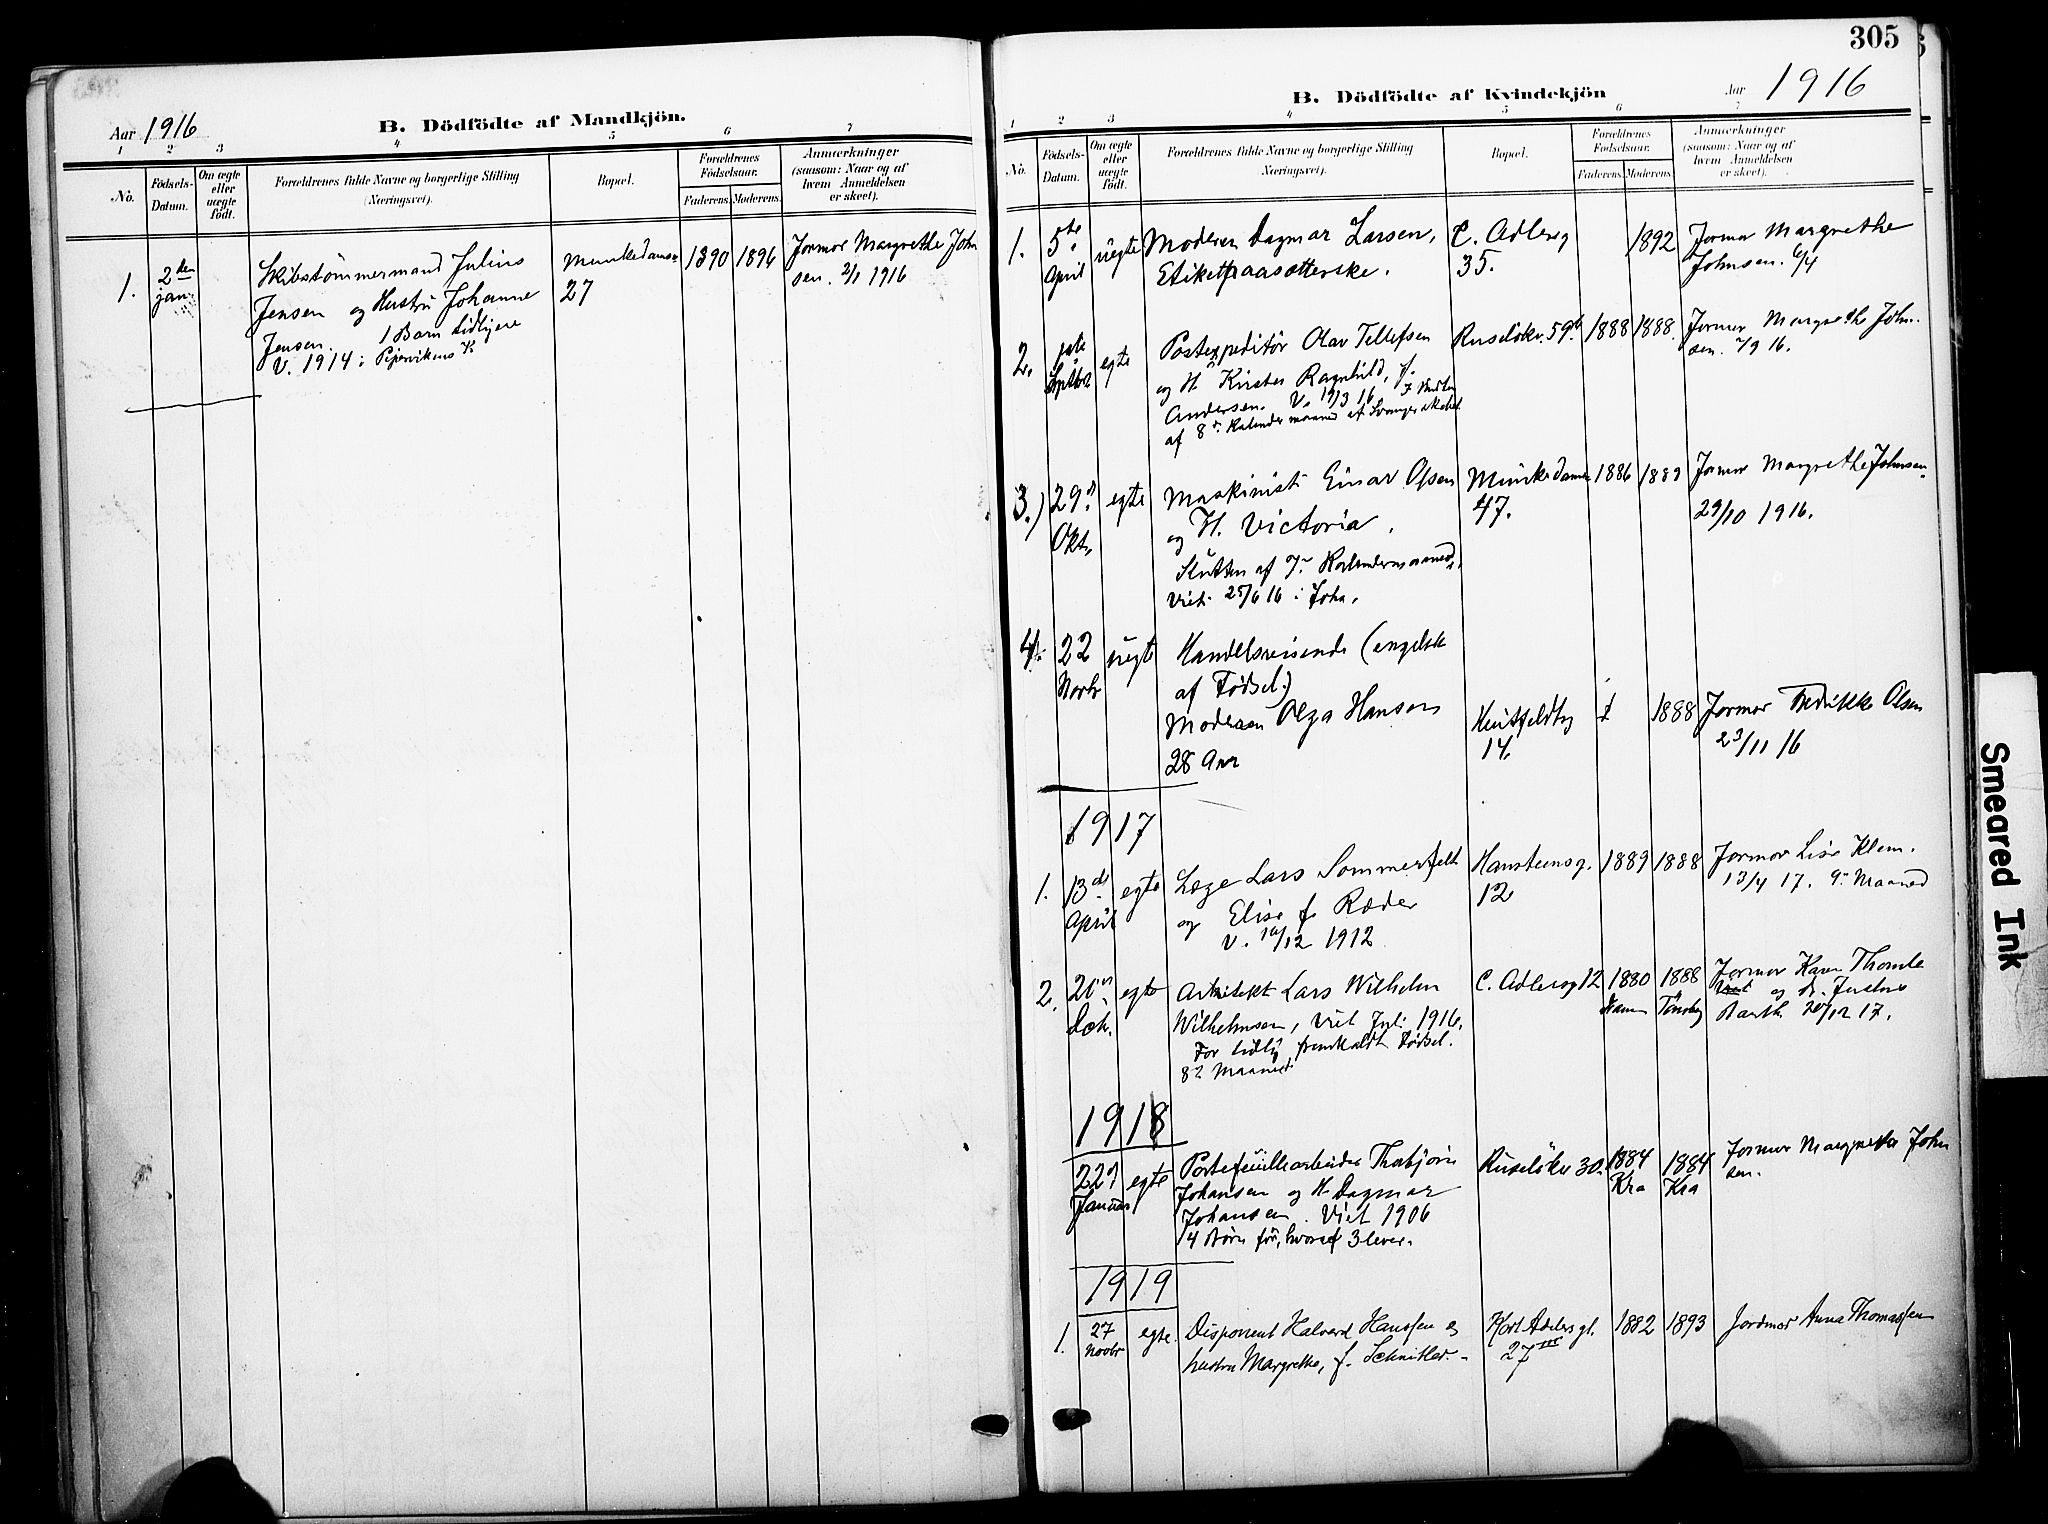 Aar 1916
B. Dödfödte af Mandkjön.
1 2 3 4 5 6 7
No.
Födsels-
Datum.
Om ægte
eller
uægte
født.
Forældrenes fulde Navne og borgerlige Stilling
(Næringsvei).
Bopæl.
Forældrenes
Födselsaar.
Faderens. Moderens.
Anmærkninger
(saasom: Naar og af
hvem Anmeldelsen
er skeet).
1.
2den
jan.
Skibstömmermand Julius
Jensen og Hustru Johanne
Jensen. 1 Barn tidligere
V. 1914 i Pipervikens K
Munkedamsv
27
1890 1896
Jormor Margrethe John
sen. 2/1 1916
305
B. Dödfödte af Kvindekjön
Aar 1916
1 2 3 4 5 6 7
No.
Födsels-
Datum.
Om ægte
eller
uægte
födt.
Forældrenes fulde Navne og borgerlige Stilling
(Næringsvei).
Bopæl.
Forældrenes
Födselsaar.
Faderens. Moderens.
Anmærkninger
(saasom: Naar og af
hvem Anmeldelsen
er skeet).
1.
5te
April
uegte
Moderen Dagmar Larsen,
Etiketpaasætterske.
C. Adlersg
35.
1892
Jormor Margrethe
Johnsen. 6/4
2.
Septbr
egte
Postexpeditör Olav Tellefsen
og H Kirsten Ragnhild, f.
Andersen. V. 19/3 16
af 8 Kalendermaaned af Svangerskabet
Ruselökv. 59
1888 1888.
Jormor Margrethe John-
sen. 1/9 16.
3.)
29
Okt.
egte
Maskinist Einar Olsen
og H. Victoria.
Slutten af 7 Kalendermaaned.
Viet 25/6 16 i Joha.
Munkedamsv
47.
1886 1889
Jormor Margrethe Johnsen
29/10 1916.
4.
22
Novbr
uegte
Handelsreisende (engelsk
af Fødsel.)
Moderen Olga Hansen
28 Aar
Huitfeldtsg
14.
1888
Jormor Fredrikke Olsen
23/11 16
1917
1.
13de
April
egte
Læge Lars Sommerfelt
og Elise f. Ræder
V. /12 1912
Hansteensg.
12
1889 1888
Jormor Lise Klem.
13/4 17. 9 Maaned
2.
20
Dcb.
egte
Arkitekt Lars Wilhelm
Wilhelmsen, Viet Juli 1916.
For tidlig fremkaldt Fødsel.
8 Maaned
C. Adlersg 12
1880
Hamar
1888
Tönsberg
Jormor Karen Thomle
og dr. Justus
Barth 20/12 17.
1918
22
Januar
egte
Portefeuillearbeider Thorbjörn
Johansen og H. Dagmar
Johansen. Viet 1906
4 Börn för, hvoraf 3 lever.
Ruselökv 30.
1884
Kra
1884
Kra
Jormor Margrethe John
sen.
1919
1.
27
Novbr
egte.
Disponent Halvard Hanssen og
hustru Margrethe, f. Schnitler.
Kort Adelers gt.
27 III
1882 1893
Jordmor Anna Thomassen
Smeared Ink